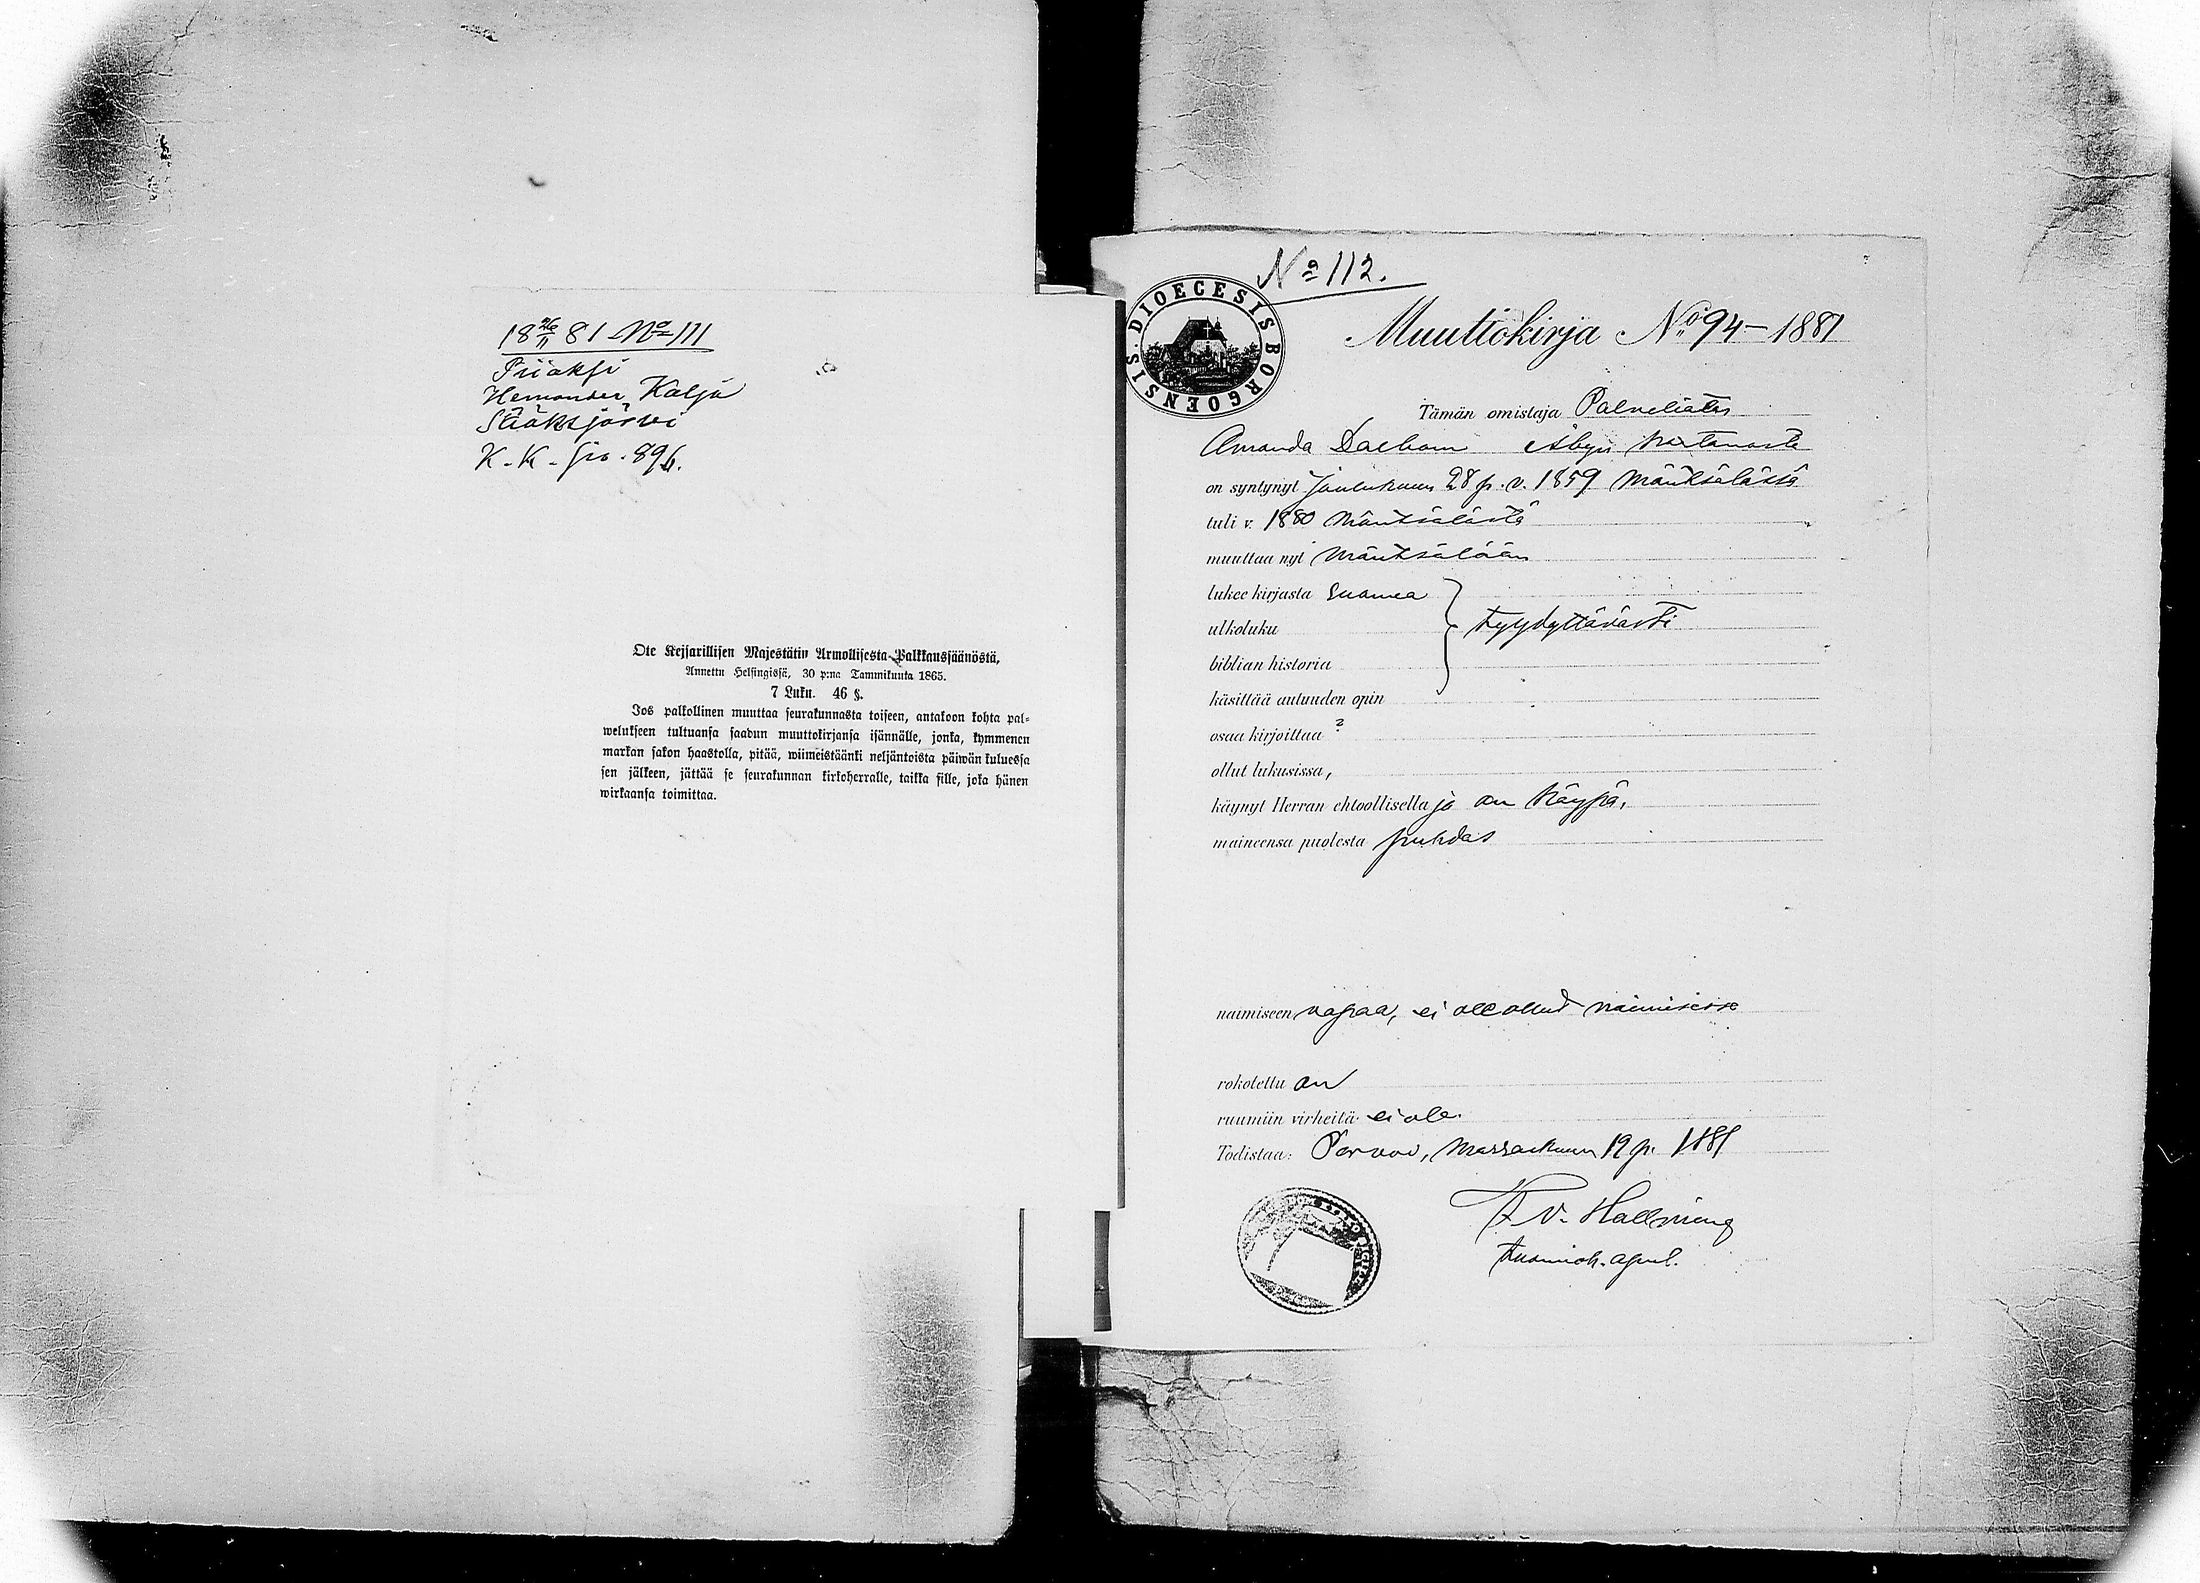 18 26/11 81 No 111
Hemander Kalja
Sääksjärvi
K. K. siv. 896.
Ote Keisarillisen Majestätin Armollisesta Palkkaussäänöstä,
Annettu Helsingissä, 30 p:nä Tammikuuta 1865.
7 Luku. 46 §.
Jos palkollinen muuttaa seurakunnasta toiseen, antakoon kohta pal-
welukseen tultuansa saadun muuttokirjansa isännälle, jonka, kymmenen
markan sakon haastolla, pitää, wiimeistäänki neljäntoista päiwän kuluessa
sen jälkeen, jättää se seurakunnan kirkoherralle, taikka sille, joka hänen
wirkaansa toimittaa.
No 112.
DIOECESIS BORGOENSIS.
Muuttokirja No 94 - 1881
Tämän omistaja Palveliatar
Amanda Dalbom Åbyn kartanosta
on syntynyt Joulukuun 28 p. v. 1859 Mäntsälässä
tuli v. 1880 Mäntsälästä
muuttaa nyt Mäntsälään
lukee kirjasta Suomea
ulkoluku tyydyttävästi
biblian historia
käsittää autuuden opin
osaa kirjoittaa ?
ollut lukusissa,
käynyt Herran ehtoollisella ja on käypä,
maineensa puolesta puhdas
naimiseen vapaa, ei ole ollut naimisissa
rokotettu on
ruumiin virheitä ei ole.
Todistaa: Porvoo, Marraskuun 19 p. 1881
v. Hallming